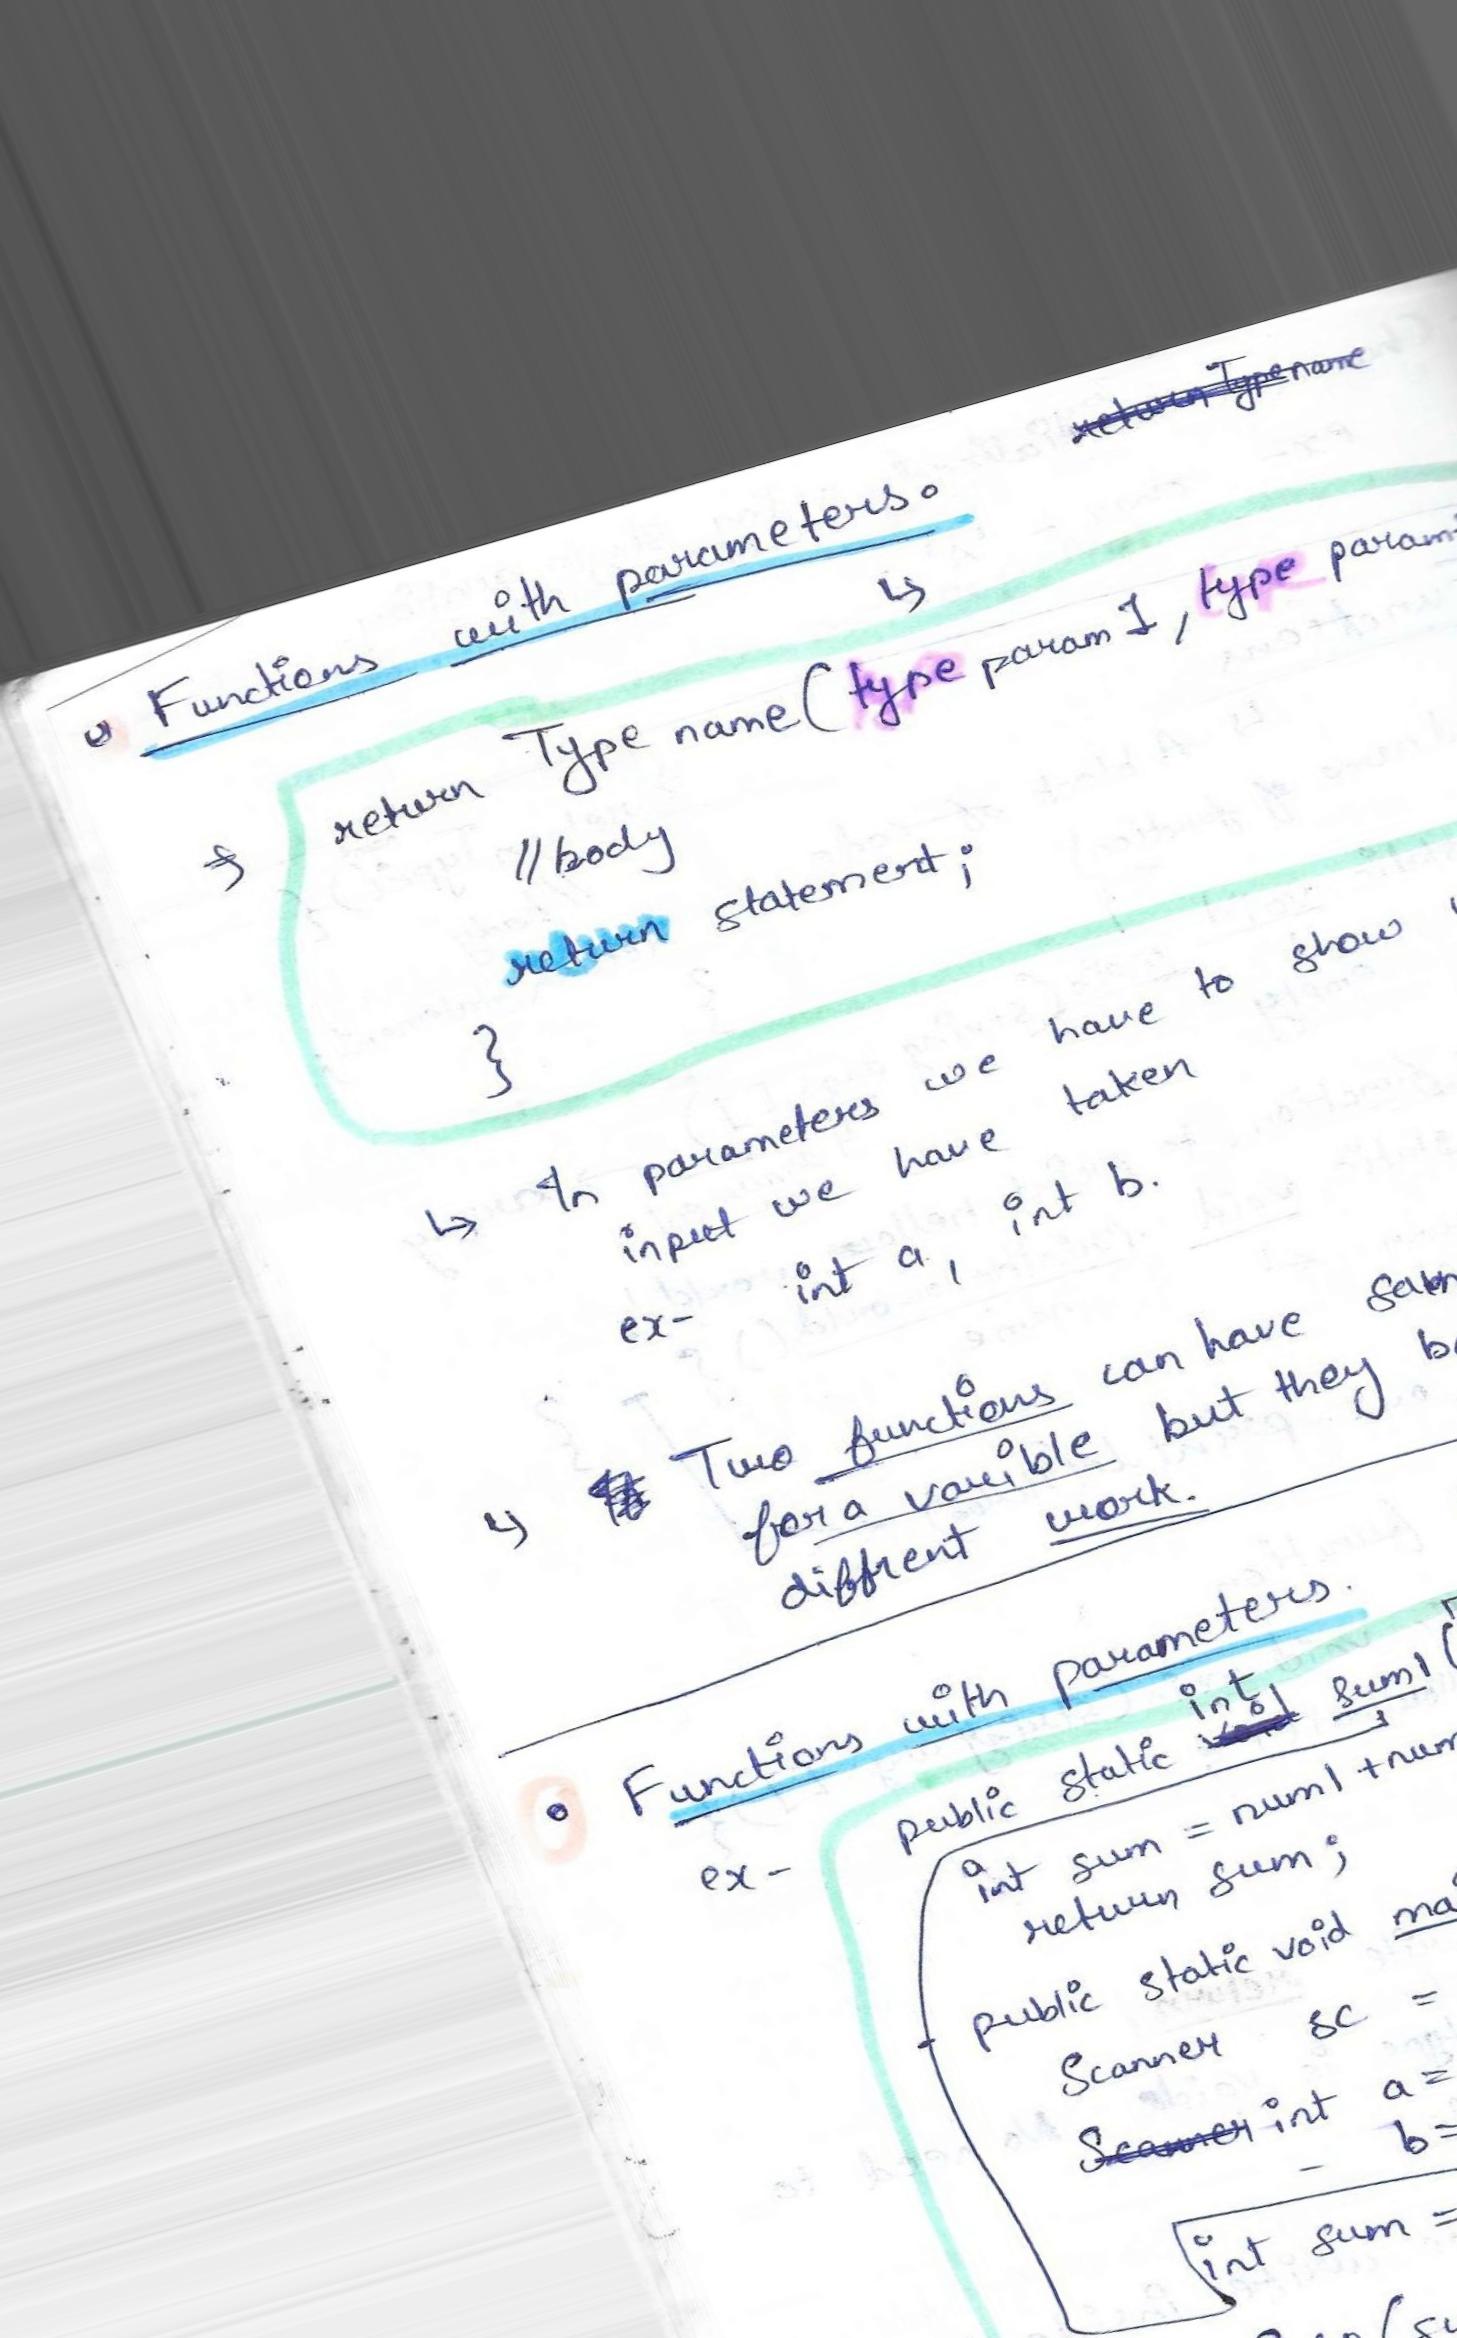 Functions with parameters.
return Type name(type param 1, type param
//body
return statement;
}
In parameters we have to show
input we have taken
ex- int a, int b.
Two functions can have
for a varible but they
diffrent work.
Functions with parameters.
ex- public static int sum1(
int sum = num1 + num
return sum;
public static void
Scanner sc =
int a =
b =
int sum =